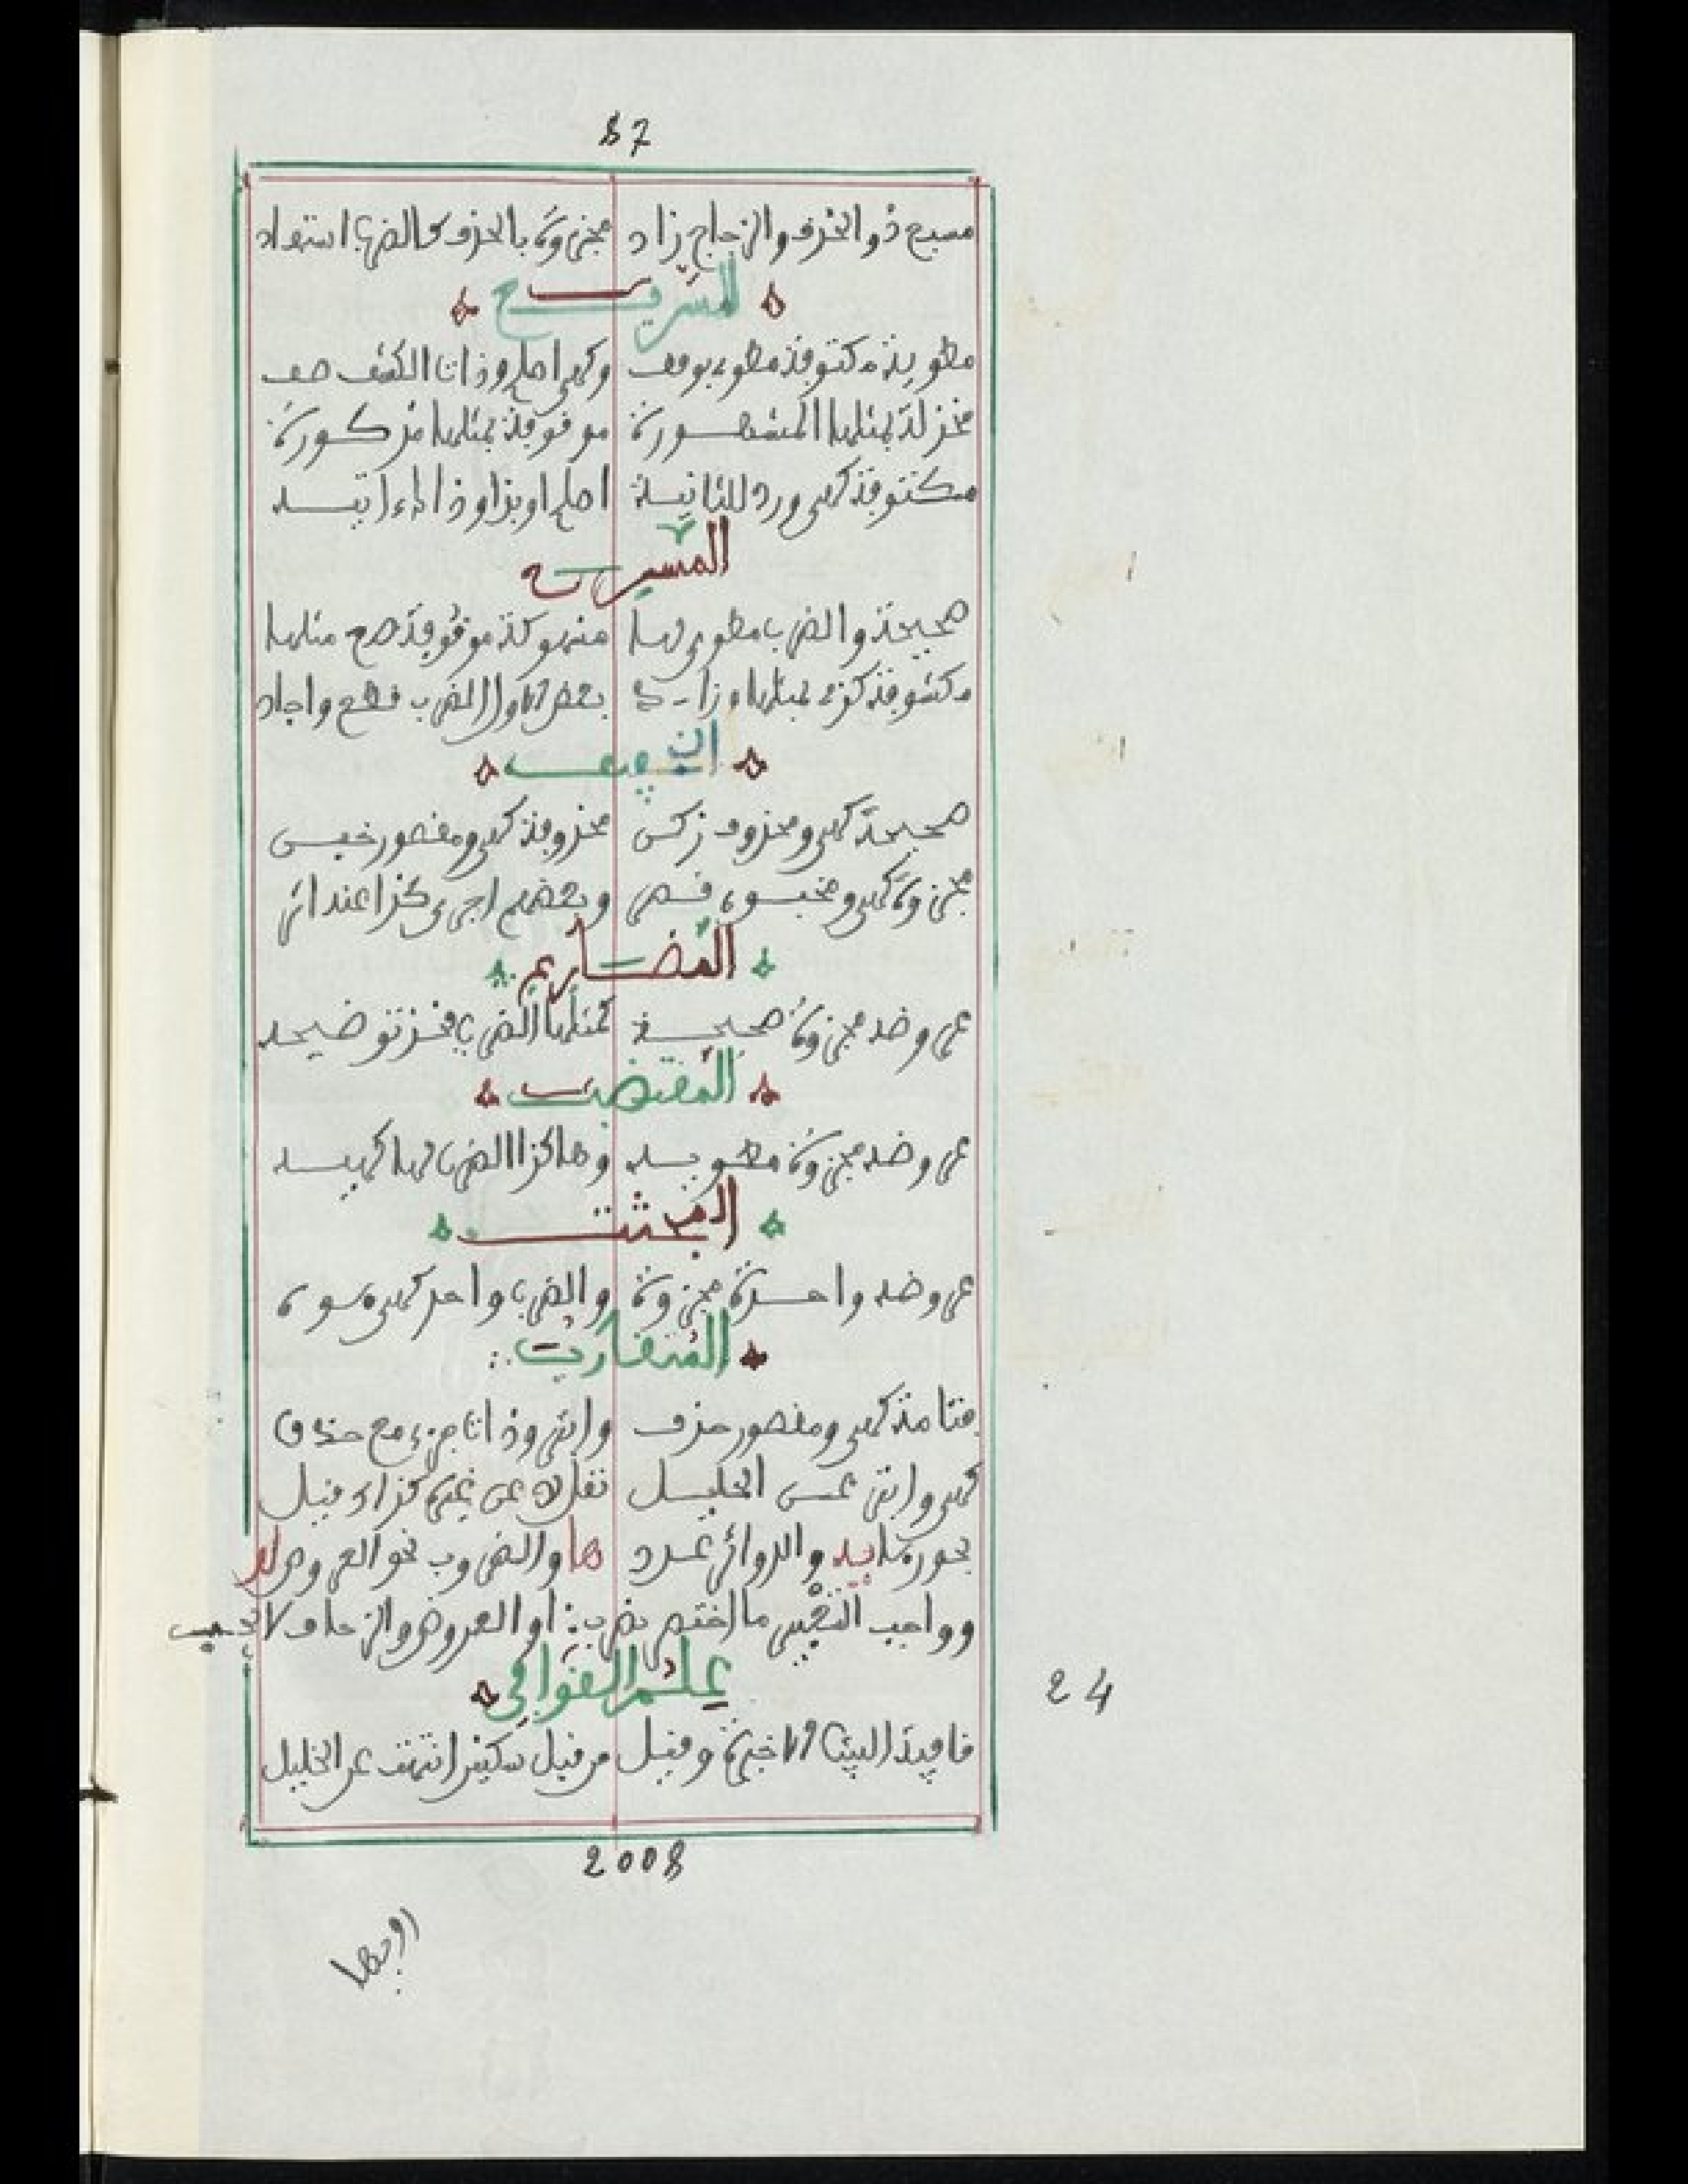 87
مسبع ذو الحذف والزجاج زاد مجزوة بالحذف كالضرب استفاد
السريع
مطوية مكشوفة مطو بوقف وكهي اصلم وذات الكشف صف
مخزلة بمثلها المشطورة موقوفة بمثلها مذكورة
مكشوفة كهي ورد للثانية اصلم او بذا وذا
المنسرح
صحيحة والضرب مطوي لها منهوكة موقوفة صح مثلها
مكشوفة كذي بمثلها وزاد بعض الاول الضرب قطع واجاد
الخفيف
صحيحة كهي ومحذوف زكن محذوفة كهي ومقصور خبن
مجزوة كهي ومخبون قصر وبعضهم اجرى كذا عند
المضارع
عروضه مجزوة صحيحة كمثلها الضرب فخذ توضيحه
المقتضب
عروضه مجزوة مطويه وهاكذا الضرب لها كهيه
المجتث
عروضه واحدة مجزوة والضرب واحد كهي سوة
المتقارب
فتامة كهي ومقصور حذف وابتر وذات جزء مع حذف
كهي وابتر عن الخليل نقله عن غيره كذاك قيل
بحورها يه والدوائر عدد ها والضروب نحو العروض لد
وواجب التغيير ما اختص بضرب او العروض والزحاف لا يجب
علم القوافي
قافية البيت الاخيرة وقيل من قبل سكنين انتهت عن الخليل
24
2008
اوجها